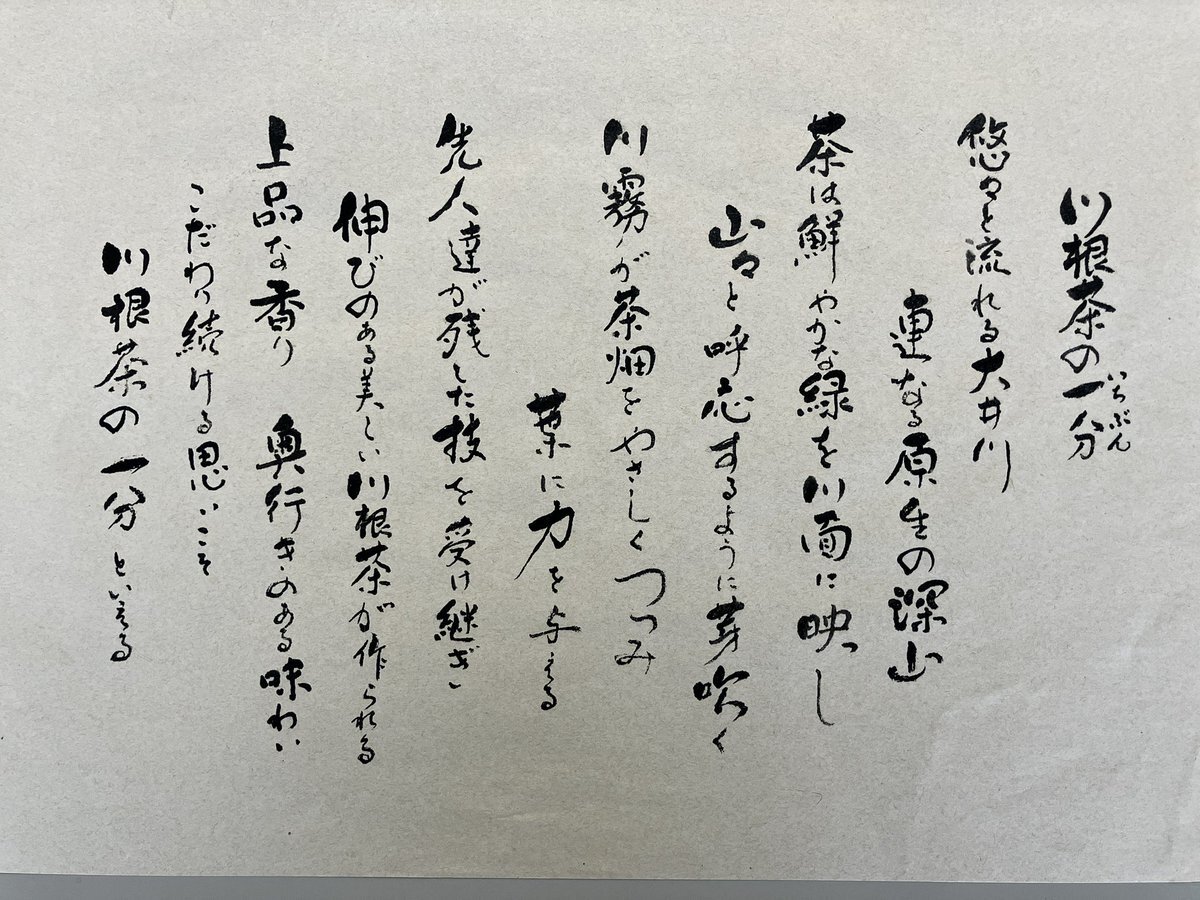 川根茶の一分
いちぶん
悠々と流れる大井川
連なる原生の深山
茶は鮮やかな緑を川面に映し
山々と呼応するように芽吹く
川霧が茶畑をやさしくつつみ
葉に力を与える
先人達が残した技を受け継ぎ
伸びのある美しい川根茶が作られる
上品な香り 奥行きのある味わい
こだわり続ける思いこそ
川根茶の一分といえる